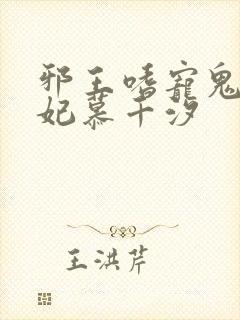 邪王嗜宠鬼
妃慕千汐
王洪芹